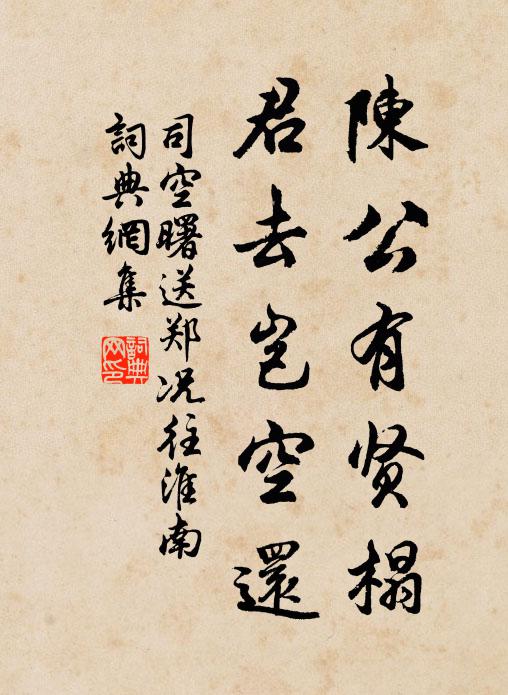 陳公有贤榻
君去岂空還
司空曙送郑况往淮南
詞典網集
詞典網印